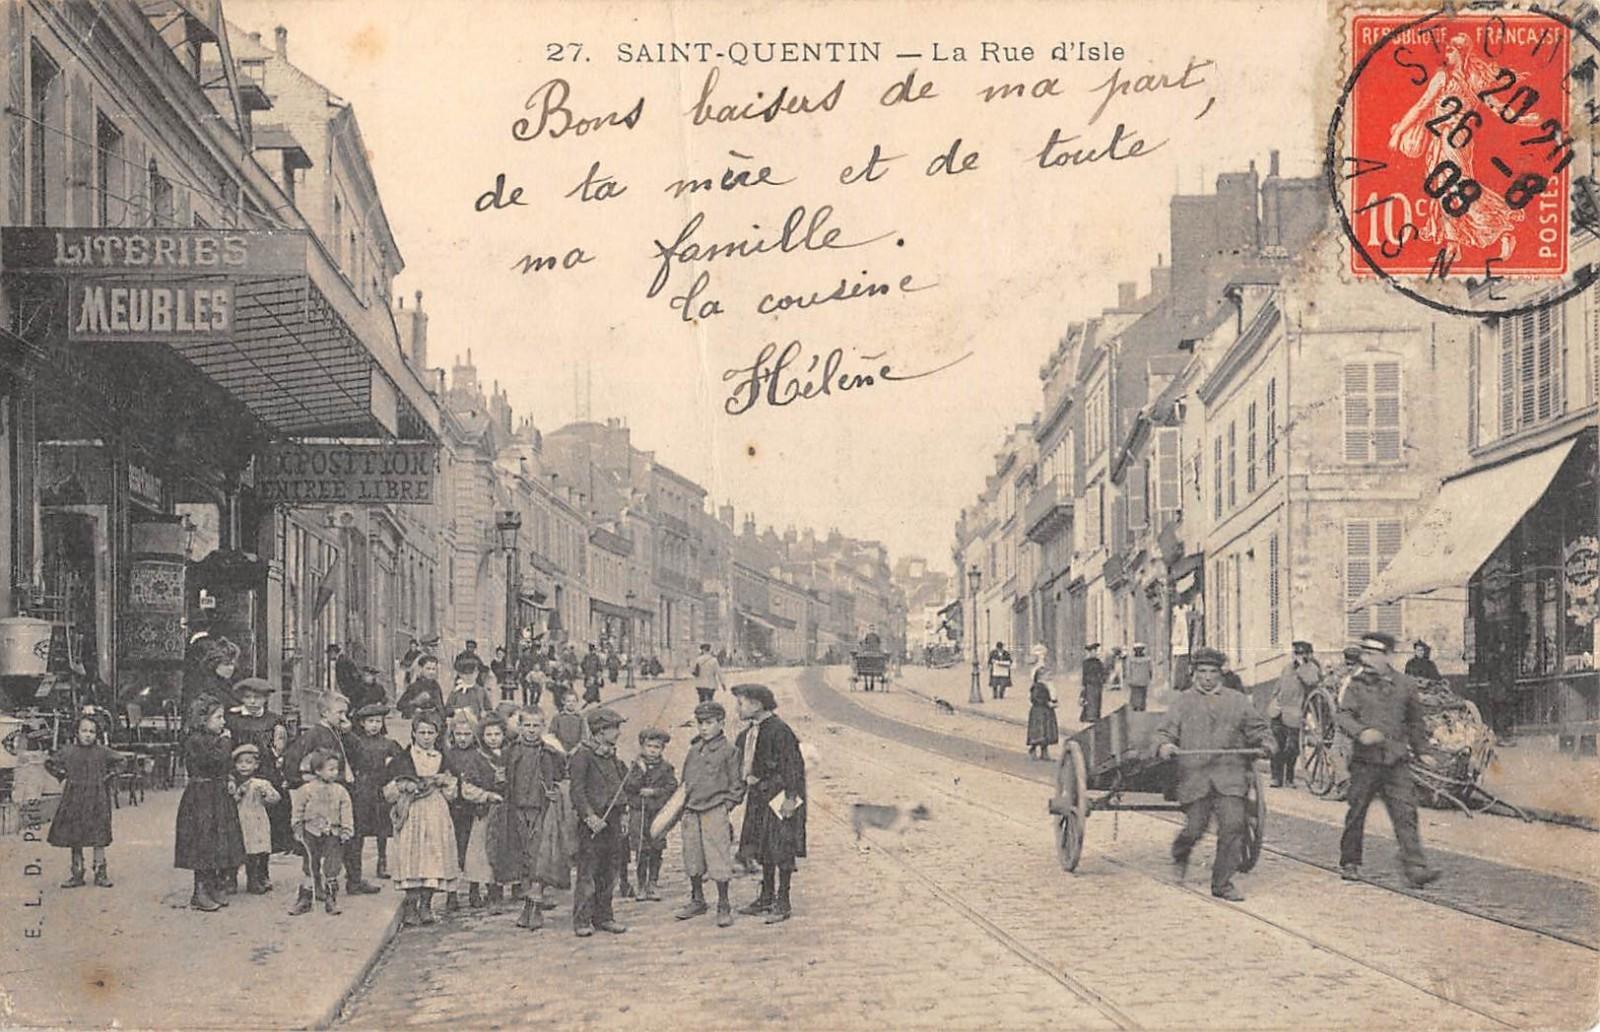 27. SAINT-QUENTIN — La Rue d'Isle
Bons baisers de ma part,
de ta mère et de toute
ma famille.
ta cousine
Hélène
REPUBLIQUE FRANÇAISE
10 c
POSTES
ST QUENTIN
20
26 -8
08
AISNE
LITERIES
MEUBLES
EXPOSITION
ENTREE LIBRE
E. L. D. Paris